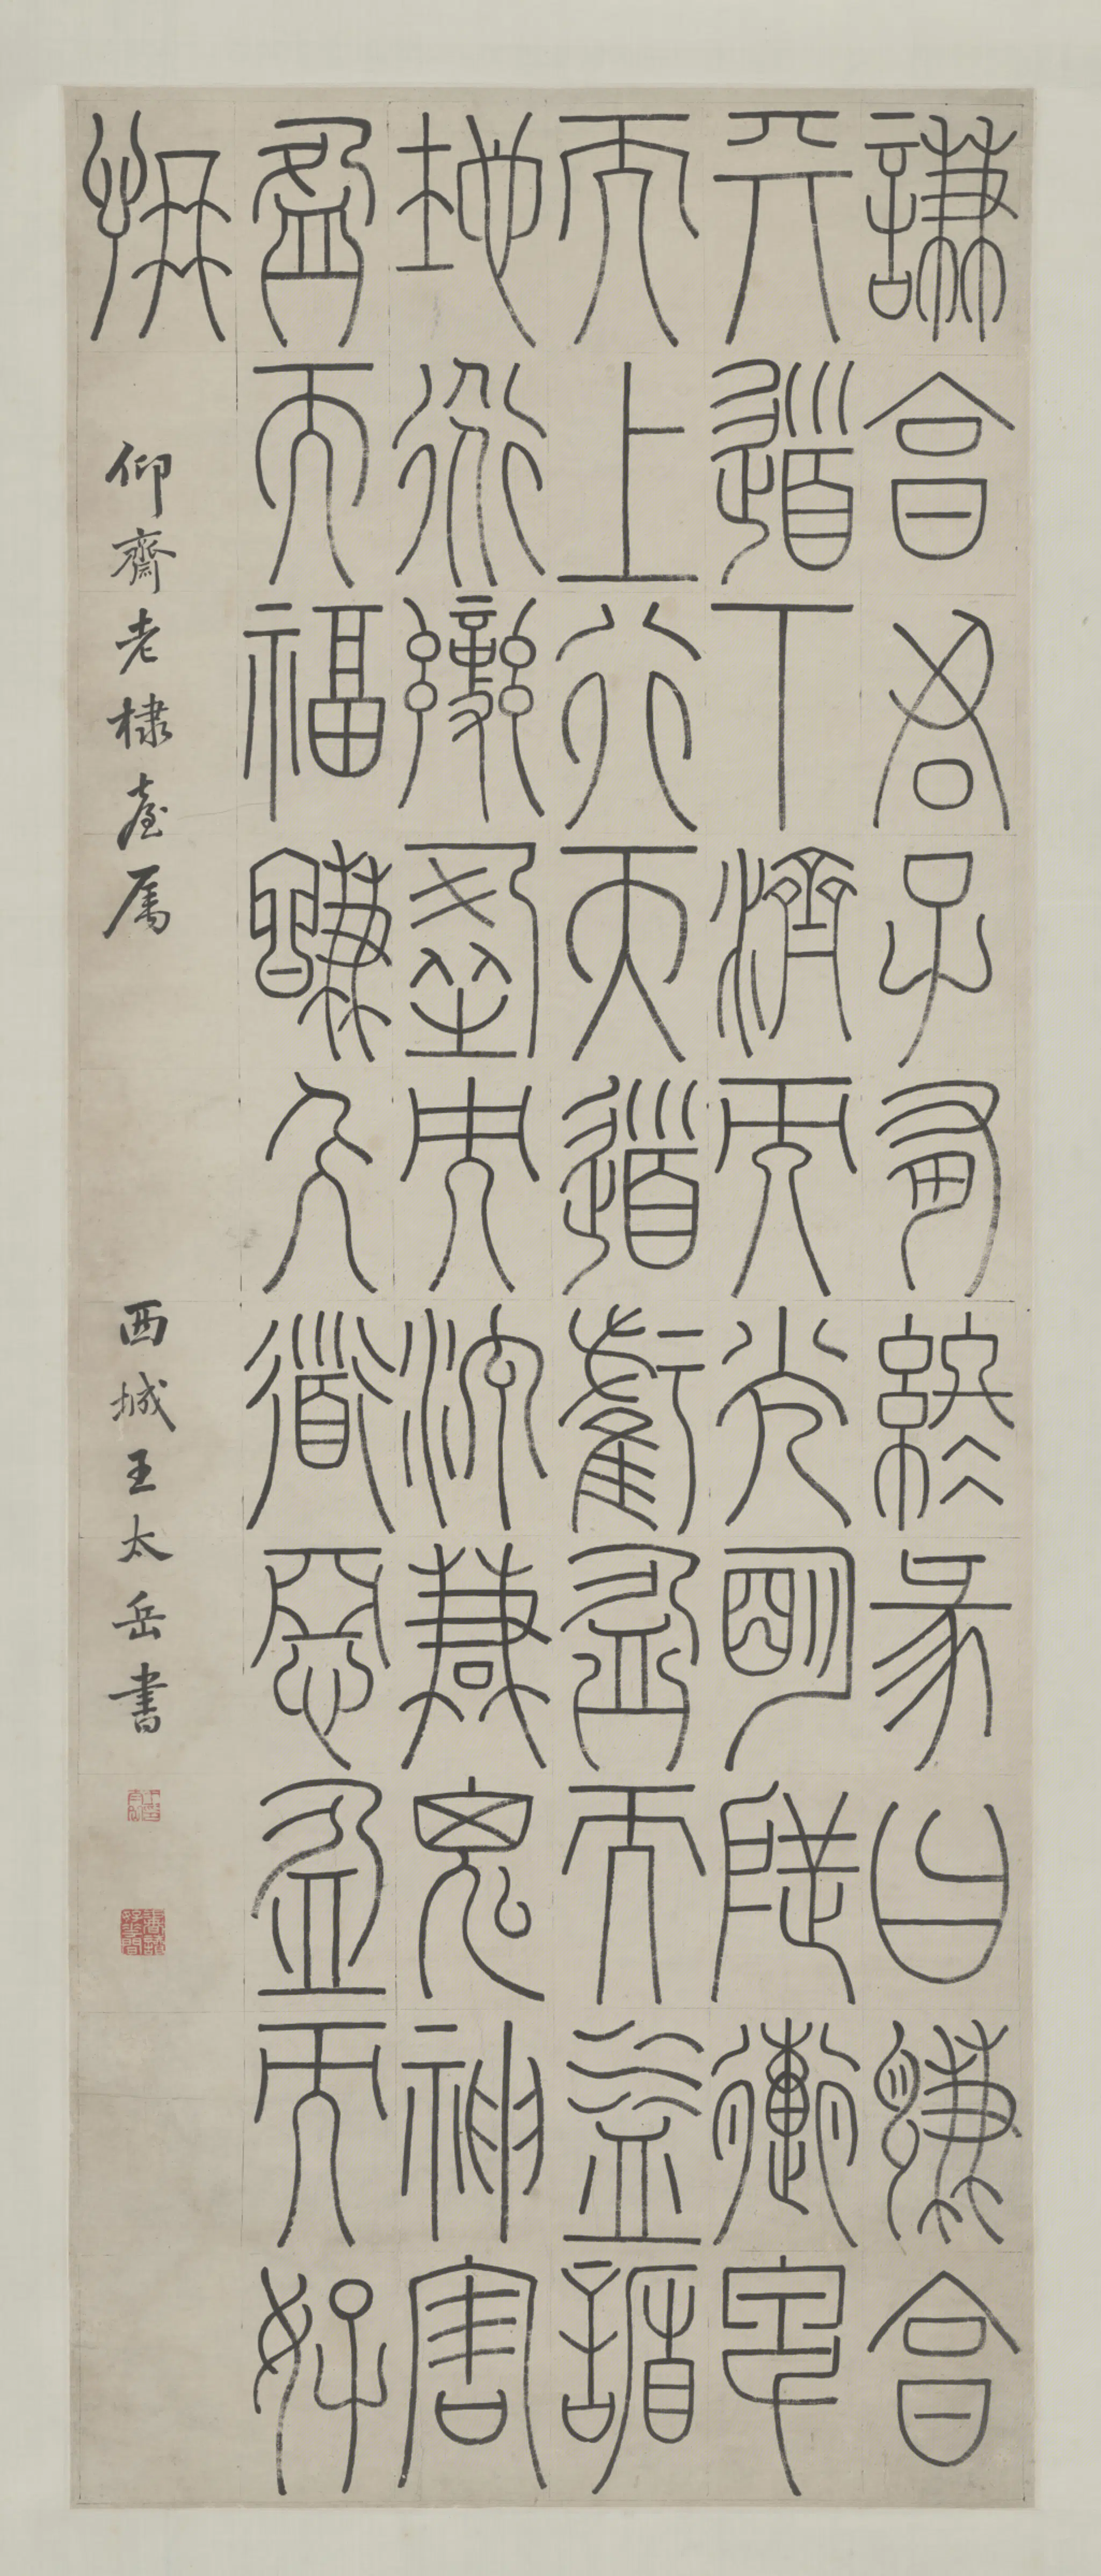 謙亨君子有終彖曰謙亨
天道下濟而光明地道卑
而上行天道虧盈而益謙
地道變盈而流謙鬼神害
盈而福謙人道惡盈而好
謙
仰齋老棣臺屬
西城王太岳書